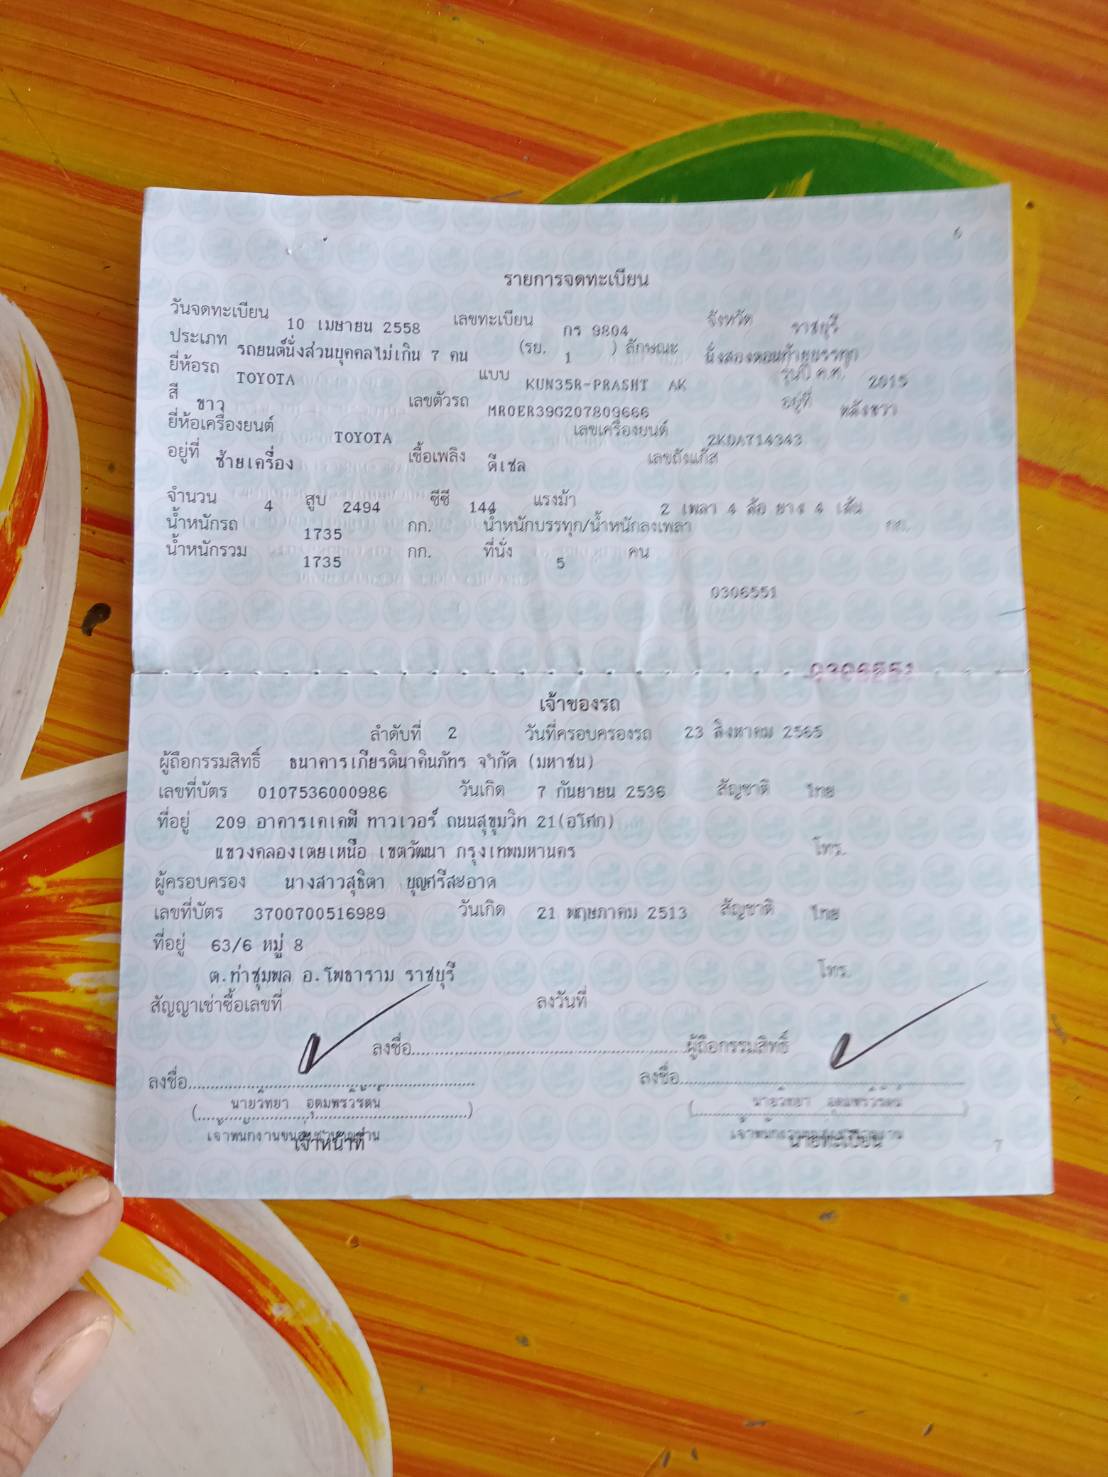 6
รายการจดทะเบียน
วันจดทะเบียน 10 เมษายน 2558 เลขทะเบียน กร 9804 จังหวัด ราชบุรี
ประเภท รถยนต์นั่งส่วนบุคคลไม่เกิน 7 คน (รย. 1 ) ลักษณะ นั่งสองตอนท้ายบรรทุก
ยี่ห้อรถ TOYOTA แบบ KUN35R-PRASHT AK รุ่นปี ค.ศ. 2015
สี ขาว เลขตัวรถ MR0ER39G207809666 อยู่ที่
ยี่ห้อเครื่องยนต์ TOYOTA เลขเครื่องยนต์ 2KDA714343
อยู่ที่ ซ้ายเครื่อง เชื้อเพลิง ดีเซล เลขถังแก๊ส
จำนวน 4 สูบ 2494 ซีซี 144 แรงม้า 2 เพลา 4 ล้อ ยาง 4 เส้น
น้ำหนักรถ 1735 กก. น้ำหนักบรรทุก/น้ำหนักลงเพลา กก.
น้ำหนักรวม 1735 กก. ที่นั่ง 5 คน
0306551
0306551
เจ้าของรถ
ลำดับที่ 2 วันที่ครอบครองรถ 23 สิงหาคม 2565
ผู้ถือกรรมสิทธิ์ ธนาคารเกียรตินาคินภัทร จำกัด (มหาชน)
เลขที่บัตร 0107536000986 วันเกิด 7 กันยายน 2536 สัญชาติ ไทย
ที่อยู่ 209 อาคารเคเคพี ทาวเวอร์ ถนนสุขุมวิท 21(อโศก)
แขวงคลองเตยเหนือ เขตวัฒนา กรุงเทพมหานคร โทร.
ผู้ครอบครอง นางสาวสุธิตา บุญศรีสะอาด
เลขที่บัตร 3700700516989 วันเกิด 21 พฤษภาคม 2513 สัญชาติ ไทย
ที่อยู่ 63/6 หมู่ 8
ต.ท่าชุมพล อ.โพธาราม ราชบุรี โทร.
สัญญาเช่าซื้อเลขที่ ลงวันที่
ลงชื่อ ผู้ถือกรรมสิทธิ์
ลงชื่อ ลงชื่อ
(นายวิทยา อุดมพรวิรัตน์) (นายวิทยา อุดมพรวิรัตน์)
เจ้าหน้าที่ นายทะเบียน
7